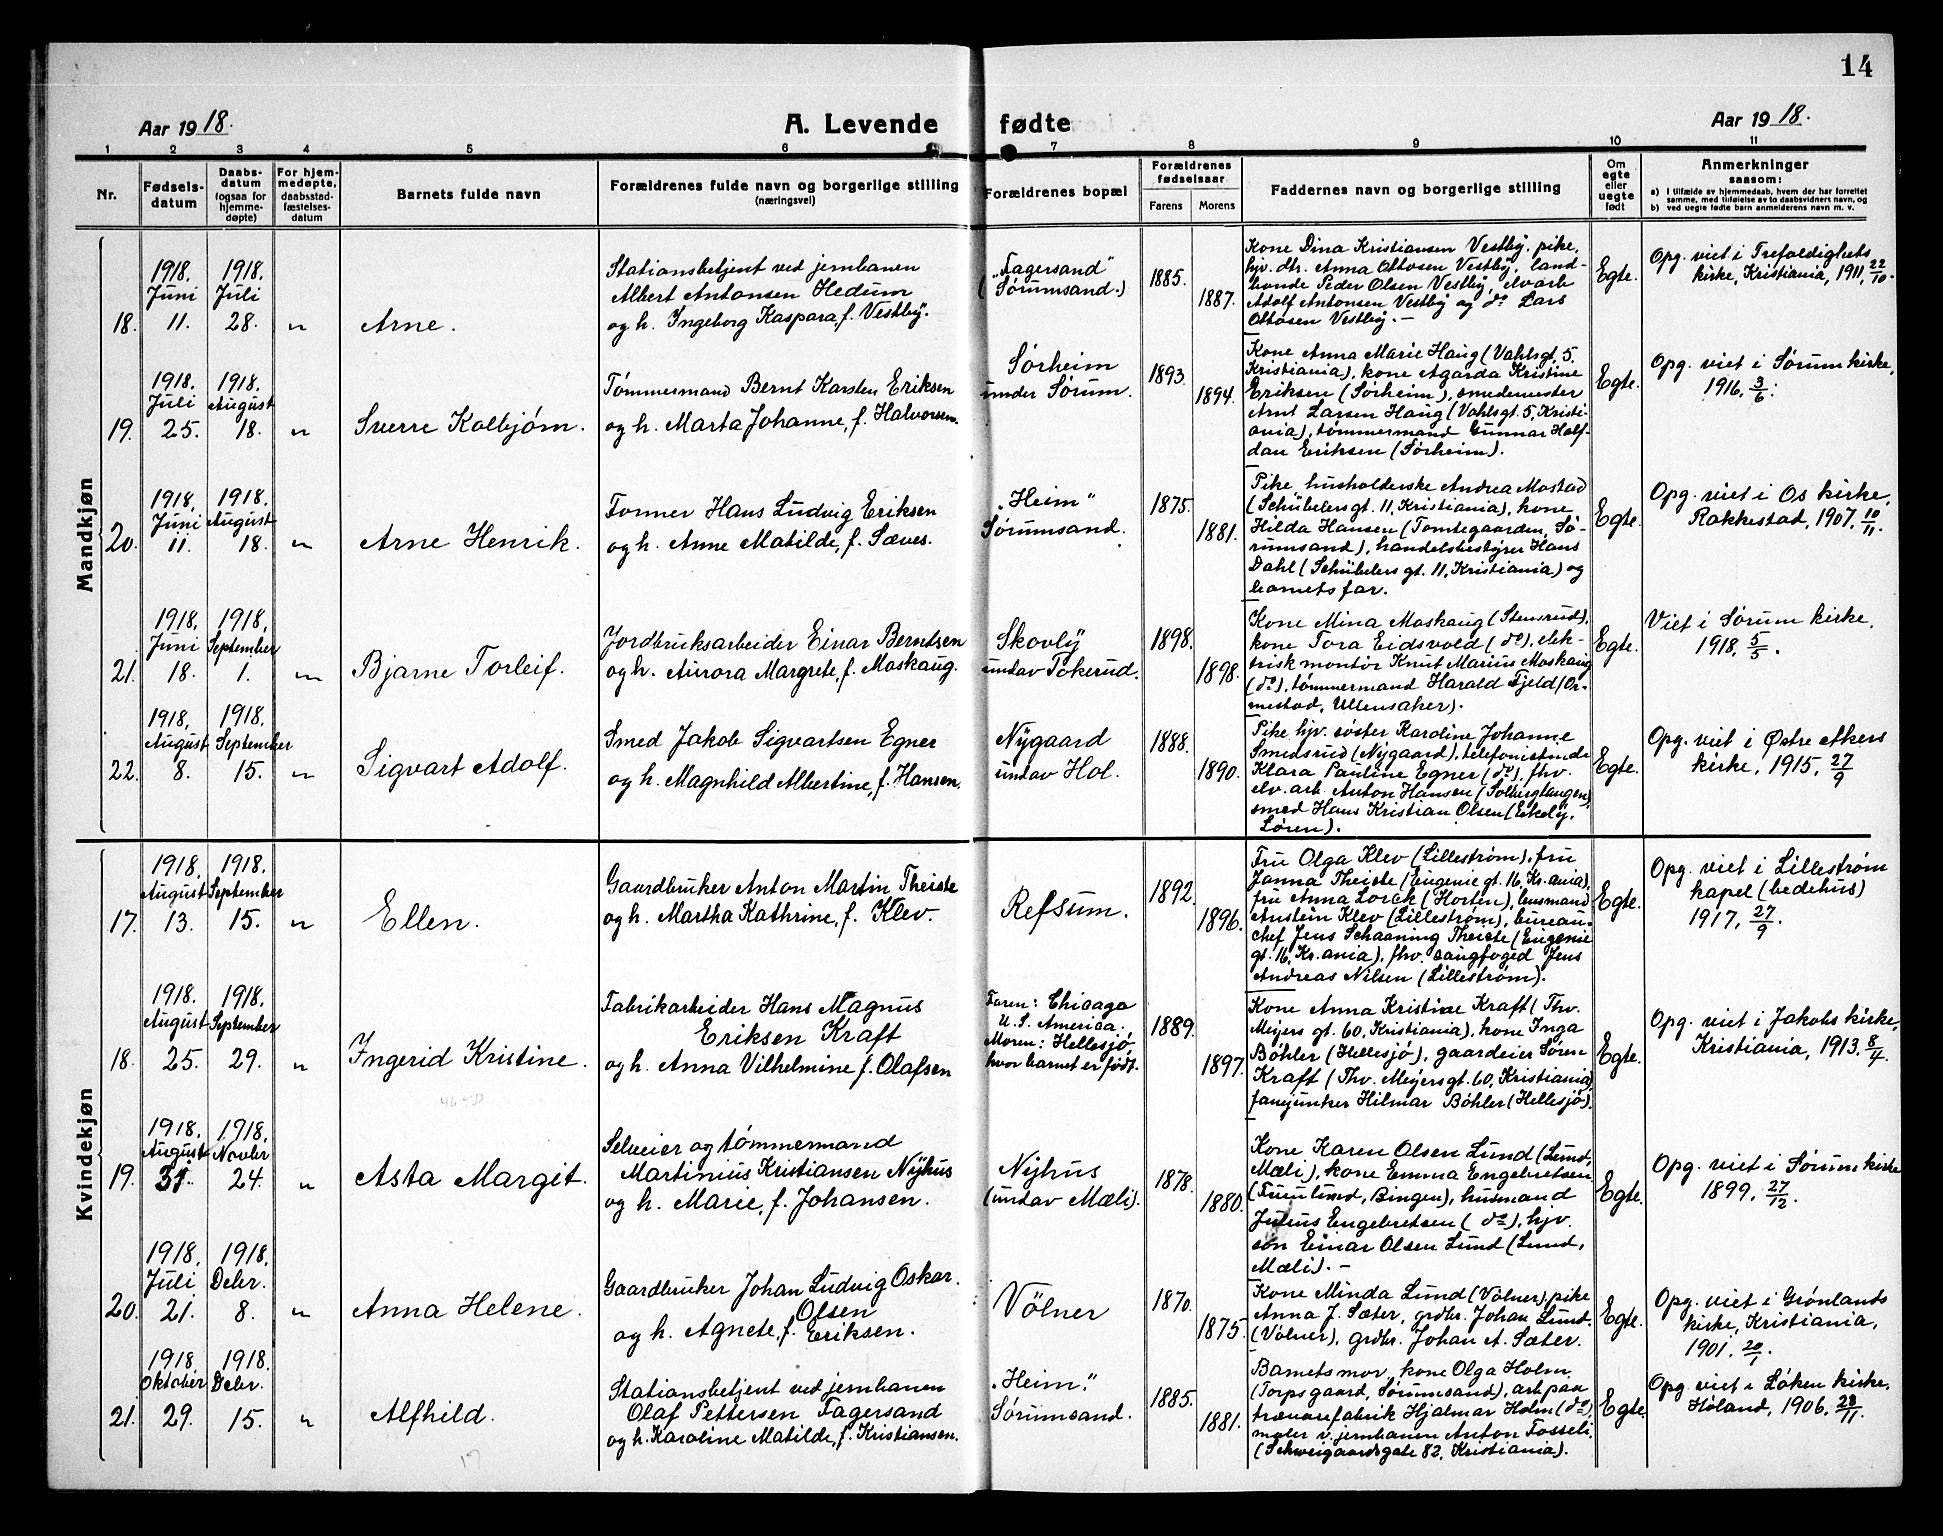 14
Aar 1918.
A. Levende fødte
Aar 1918.
1 2 3 4 5 6 7 8 9 10 11
Nr.
Fødsels-
datum
Daabs-
datum
(ogsaa for
hjemme-
døpte)
For hjem-
medøpte,
daabsstad-
fæstelses-
datum
Barnets fulde navn
Forældrenes fulde navn og borgerlige stilling
(næringsvei)
Forældrenes bopæl
Forældrenes
fødselsaar
Farens Morens
Faddernes navn og borgerlige stilling
Om
egte
eller
uegte
født
Anmerkninger
saasom:
a) I tilfælde av hjemmedaab, hvem der har forrettet
samme, med tilføielse av to daabsvidners navn, og
b) ved uegte fødte barn anmelderens navn m. v.
Mandkjøn
18.
1918.
Juni
11.
1918.
Juli
28.
"
Arne.
Stationsbetjent ved jernbanen
Albert Antonsen Hedum
og h. Ingeborg Kaspara, f. Vestby.
"Fagersand"
(Sørumsand.)
1885.
1887.
Kone Dina Kristiansen Vestby, pike,
hjv. dtr. Anna Ottosen Vestby, land-
bonde Peder Olsen Vestby, elvarb
Adolf Antonsen Vestby og do Lars
Ottosen Vestby. –
Egte.
Opg. viet i Trefoldigheds
kirke, Kristiania, 1911, 22/10.
19.
1918.
Juli
25.
1918.
August
18.
"
Sverre Kolbjørn.
Tømmermand Bernt Karsten Eriksen
og h. Marta Johanne, f. Halvorsen.
Sørheim
under Sørum.
1893.
1894.
Kone Anna Marie Haug (Vahlsgt. 5.
Kristiania), kone Agarda Kristine
Eriksen (Sørheim), smedemester
Arnt Larsen Haug (Vahlsgt. 5, Kristi-
ania), tømmermand Gunnar Half-
dan Eriksen (Sørheim).
Egte.
Opg. viet i Sørum kirke,
1916, 3/6.
20.
1918.
Juni
11.
1918.
August
18.
"
Arne Henrik.
Former Hans Ludvig Eriksen
og h. Anne Matilde, f. Sæves.
"Heim"
Sørumsand.
1875.
1881.
Pike husholderske Andrea Mostad
(Schübelersgt. 11, Kristiania), kone
Hilda Hansen (Tomtegaarden, Sø-
rumsand), handelsbestyrer Hans
Dahl (Schübelers gt. 11, Kristiania) og
barnets far.
Egte.
Opg. viet i Os kirke,
Rakkestad, 1907, 10/11.
21.
1918.
Juni
18.
1918.
September
1.
"
Bjarne Torleif.
Jordbruksarbeider Einar Berntsen
og h. Aurora Margrete, f. Moskaug.
Skovly
undav Tokerud.
1898.
1898.
Kone Mina Moskaug (Stensrud),
kone Tora Eidsvold (do), elek-
trisk montør Knut Marius Moskaug
(do), tømmermand Harald Fjeld (Or-
mestad, Ullensaker).
Egte.
Viet i Sørum kirke,
1918, 5/5.
22.
1918.
August
8.
1918.
September
15.
"
Sigvart Adolf.
Smed Jakob Sigvartsen Egner
og h. Magnhild Albertine, f. Hansen.
Nygaard
undav Hol.
1888.
1890.
Pike hjv. søster Karoline Johanne
Smedsrud (Nygaard), telefonistinde
Klara Pauline Egner (do), fhv.
elv. arb. Anton Hansen (Solbergtangen),
smed Hans Kristian Olsen (Eikely,
Løren).
Egte.
Opg. viet i Østre Akers
kirke, 1915, 27/9
Kvindekjøn
17.
1918.
August
13.
1918.
September
15.
"
Ellen.
Gaardbruker Anton Martin Theiste
og h. Martha Kathrine, f. Klev.
Refsum.
1892.
1896.
Fru Olga Klev (Lillestrøm), fru
Janna Theiste (Eugenie gt. 16, Kr.ania),
fru Anna Lorck (Horten), lensmand
Anstein Klev (Lillestrøm), bureau-
chef Jens Schaaning Theiste (Eugenie
gt. 16, Kr.ania), fhv. sangfoged Jens
Andreas Nilsen (Lillestrøm).
Egte.
Opg. viet i Lillestrøm
kapel (bedehus)
1917, 27/9.
18.
1918.
August
25.
1918.
September
29.
"
Ingerid Kristine.
Fabrikarbeider Hans Magnus
Eriksen Kraft
og h. Anna Vilhelmine f. Olafsen
Faren: Chicago
U. S. America.
Moren: Hellesjø
hvor barnet er født.
1889.
1897.
Kone Anna Kristine Kraft (Thv.
Meyers gt. 60, Kristiania), kone Inga
Bøhler (Hellesjø), gaardeier Søren
Kraft (Thv. Meyersgt. 60, Kristiania),
fanejunker Hilmar Bøhler (Hellesjø).
Egte.
Opg. viet i Jakobs kirke,
Kristiania, 1913. 8/4.
19.
1918.
August
31.
1918.
Novbr
24.
"
Asta Margit.
Selveier og tømmermand
Martinius Kristiansen Nyhus
og h. Marie, f. Johansen.
Nyhus
(undav Mæli).
1878.
1880.
Kone Karen Olsen Lund (Lund,
Mæli), kone Emma Engebretsen
(Furulund, Bingen), husmand
Julius Engebretsen (do), hjv.
søn Einar Olsen Lund (Lund,
Mæli). –
Egte.
Opg. viet i Sørum kirke
1899, 27/12.
20.
1918.
Juli
21.
1918.
Debr.
8.
"
Anna Helene.
Gaardbruker Johan Ludvig Oskar
Olsen
og h. Agnete, f. Eriksen.
Vølner
1870.
1875.
Kone Minda Lund (Vølner), pike
Anna J. Sæter, grdbr. Johan Lund
(Vølner), grdbr. Johan A. Sæter.
Egte.
Opg. viet i Grønlands
kirke, Kristiania,
1901. 20/1.
21.
1918
Oktober
29.
1918.
Debr.
15.
"
Alfhild.
Stationsbetjent ved jernbanen
Olaf Pettersen Fagersand
og h. Karoline Matilde, f. Kristiansen.
"Heim."
Sørumsand.
1885.
1881.
Barnets mor, kone Olga Holm,
(Torpsgaard, Sørumsand), arb. paa
trævarefabrik Hjalmar Holm (do),
maler v. jernbanen Anton Fosseli
(Schweigaardsgate 82, Kristiania).
Egte.
Opg. viet i Løken kirke,
Høland, 1906, 23/11.